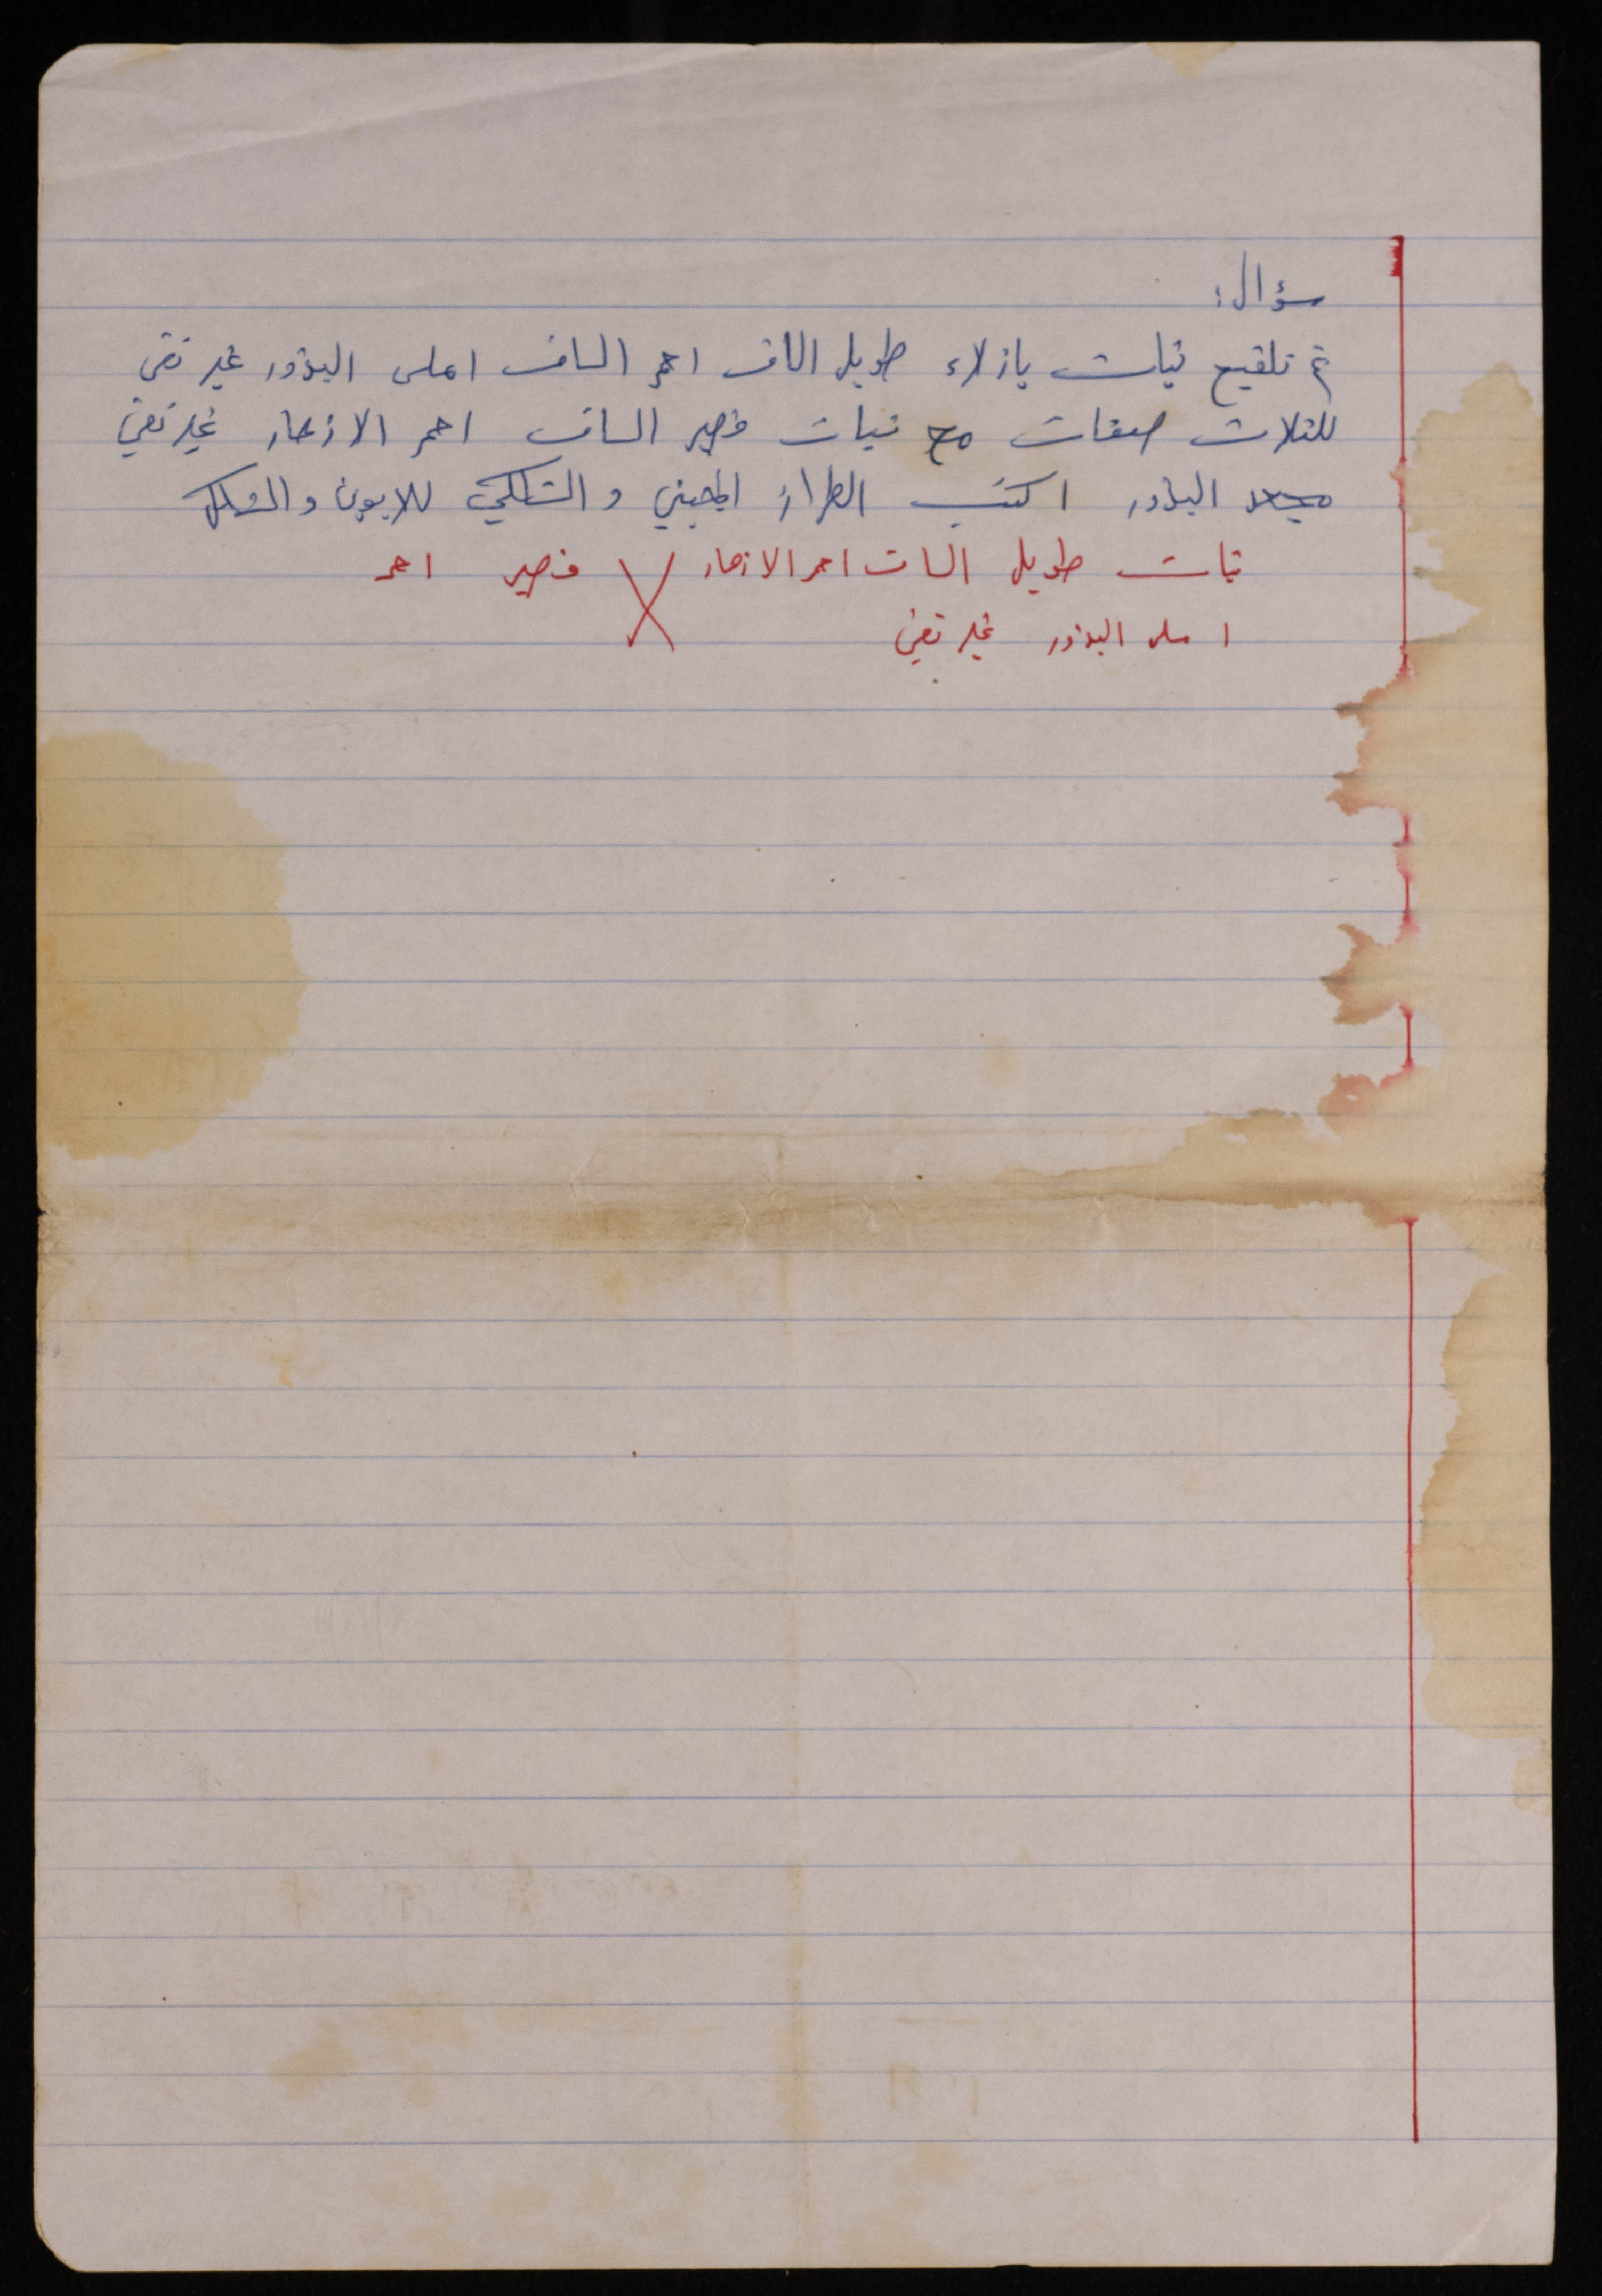 سؤال:
تم تلقيح نبات بازلاء طويل الساق احمر الساق املس البذور غير نقي
للثلاث صفات مع نبات قصير الساق احمر الازهار غير نقي
مجعد البذور اكتب الطراز الجيني والشكلي للابوين و
نبات طويل الساق احمر الازهار X قصير احمر
املس البذور غير نقي